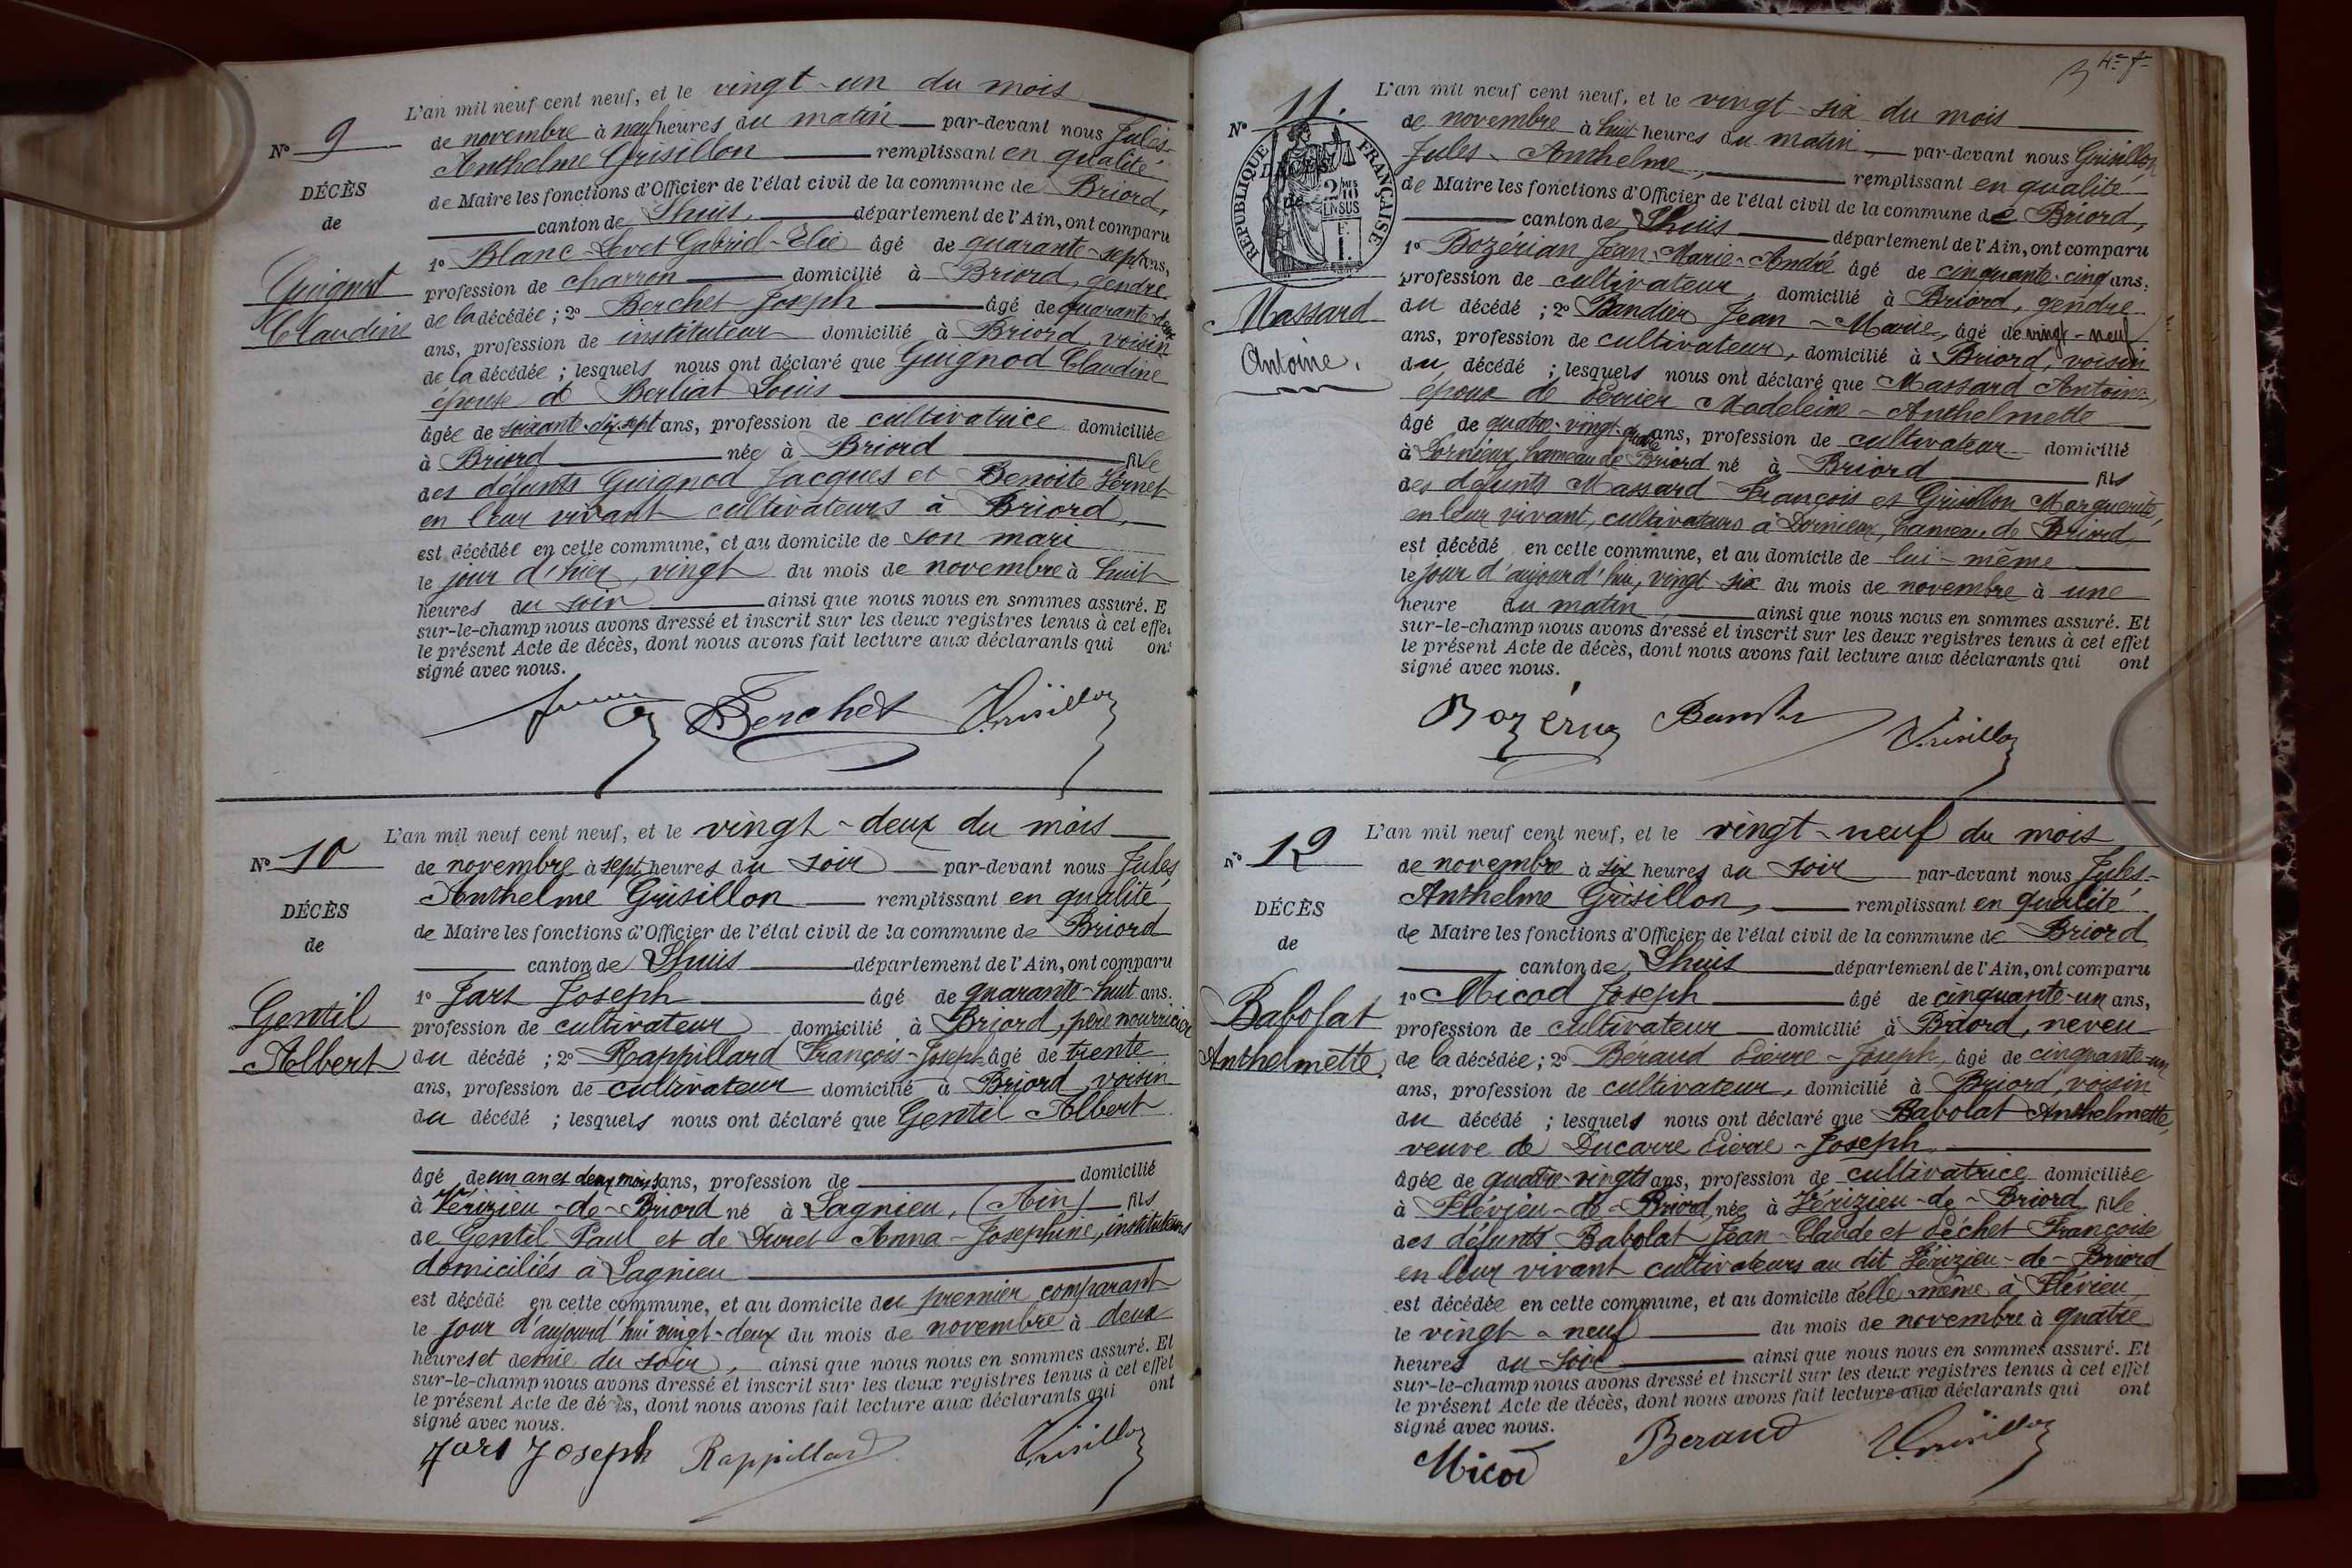 L'an mil neuf cent neuf, et le vingt-un du mois
N° 9
de novembre à neuf heures du matin par-devant nous Jules-
Anthelme Grisillon remplissant en qualité
DÉCÈS
de Maire les fonctions d'Officier de l'état civil de la commune de Briord,
de
canton de Lhuis, département de l'Ain, ont comparu
1° Blanc-Levet Gabriel-Elie âgé de quarante-sept ans,
Guignod
profession de charron domicilié à Briord, gendre
de la décédée ; 2° Berchet Joseph âgé de quarante-deux
Claudine
ans, profession de instituteur domicilié à Briord, voisin
de la décédée ; lesquels nous ont déclaré que Guignod Claudine
épouse de Berliat Louis
âgée de soixante-dix-sept ans, profession de cultivatrice domiciliée
à Briord née à Briord fille
des défunts Guignod Jacques et Benoite Vernet
en leur vivant cultivateurs à Briord,
est décédée en cette commune, et au domicile de son mari
le jour d'hier, vingt du mois de novembre à huit
heures du soir ainsi que nous nous en sommes assuré. E
sur-le-champ nous avons dressé et inscrit sur les deux registres tenus à cet effe
le présent Acte de décès, dont nous avons fait lecture aux déclarants qui ont
signé avec nous.
Berchet Grisillon
L'an mil neuf cent neuf, et le vingt-deux du mois
N° 10
de novembre à sept heures du soir par-devant nous Jules
Anthelme Grisillon remplissant en qualité
DÉCÈS
de Maire les fonctions d'Officier de l'état civil de la commune de Briord
de
canton de Lhuis département de l'Ain, ont comparu
1° Jars Joseph âgé de quarante-huit ans.
Gentil
profession de cultivateur domicilié à Briord, père nourricier
Albert
du décédé ; 2° Rappillard François-Joseph âgé de trente
ans, profession de cultivateur domicilié à Briord, voisin
du décédé ; lesquels nous ont déclaré que Gentil Albert
âgé de un an et deux mois ans, profession de domicilié
à Vérizieu-de-Briord né à Lagnieu, (Ain) fils
de Gentil Paul et de Duret Anna-Josephine, instituteurs
domiciliés à Lagnieu
est décédé en cette commune, et au domicile du premier comparant
le jour d'aujourd'hui vingt-deux du mois de novembre à deux
heures et demie du soir, ainsi que nous nous en sommes assuré. Et
sur-le-champ nous avons dressé et inscrit sur les deux registres tenus à cet effet
le présent Acte de décès, dont nous avons fait lecture aux déclarants qui ont
signé avec nous.
Jars Joseph Rappillard Grisillon
L'an mil neuf cent neuf, et le vingt-six du mois
N° 11.
de novembre à huit heures du matin, par-devant nous Grisillon
Jules-Anthelme, remplissant en qualité
RÉPUBLIQUE FRANÇAISE
DÉCÈS
2/10 EN SUS
de Maire les fonctions d'Officier de l'état civil de la commune de Briord,
de
canton de Lhuis département de l'Ain, ont comparu
1° Bozérian Jean-Marie-André âgé de cinquante-cinq ans,
profession de cultivateur, domicilié à Briord, gendre
Massard
du décédé ; 2° Bandier Jean-Marie, âgé de vingt-neuf
Antoine.
ans, profession de cultivateur, domicilié à Briord, voisin
du décédé ; lesquels nous ont déclaré que Massard Antoine,
époux de Perrier Madeleine-Anthelmette
âgé de quatre-vingt-quatre ans, profession de cultivateur domicilié
à Dornieux, hameau de Briord né à Briord fils
des défunts Massard François et Grisillon Marguerite,
en leur vivant, cultivateurs à Dornieux, hameau de Briord,
est décédé en cette commune, et au domicile de lui-même
le jour d'aujourd'hui, vingt-six du mois de novembre à une
heure du matin ainsi que nous nous en sommes assuré. Et
sur-le-champ nous avons dressé et inscrit sur les deux registres tenus à cet effet
le présent Acte de décès, dont nous avons fait lecture aux déclarants qui ont
signé avec nous.
Grisillon
L'an mil neuf cent neuf, et le vingt-neuf du mois
N° 12
de novembre à six heures du soir par-devant nous Jules-
Anthelme Grisillon, remplissant en qualité
DÉCÈS
de Maire les fonctions d'Officier de l'état civil de la commune de Briord
de
canton de Lhuis département de l'Ain, ont comparu
1° Micod Joseph âgé de cinquante-un ans,
Babolat
profession de cultivateur domicilié à Briord, neveu
Anthelmette.
de la décédée ; 2° Béraud Pierre-Joseph, âgé de cinquante-un
ans, profession de cultivateur, domicilié à Briord, voisin
du décédé ; lesquels nous ont déclaré que Babolat Anthelmette,
veuve de Ducarre Pierre-Joseph
âgée de quatre-vingts ans, profession de cultivatrice domiciliée
à Flévieu-de-Briord, née à Vérizieu-de-Briord fille
des défunts Babolat Jean-Claude et Péchet Françoise
en leur vivant cultivateurs au dit Vérizieu-de-Briord
est décédée en cette commune, et au domicile d'elle-même à Flévieu,
le vingt-neuf du mois de novembre à quatre
heures du soir ainsi que nous nous en sommes assuré. Et
sur-le-champ nous avons dressé et inscrit sur les deux registres tenus à cet effet
le présent Acte de décès, dont nous avons fait lecture aux déclarants qui ont
signé avec nous.
Micod Beraud Grisillon